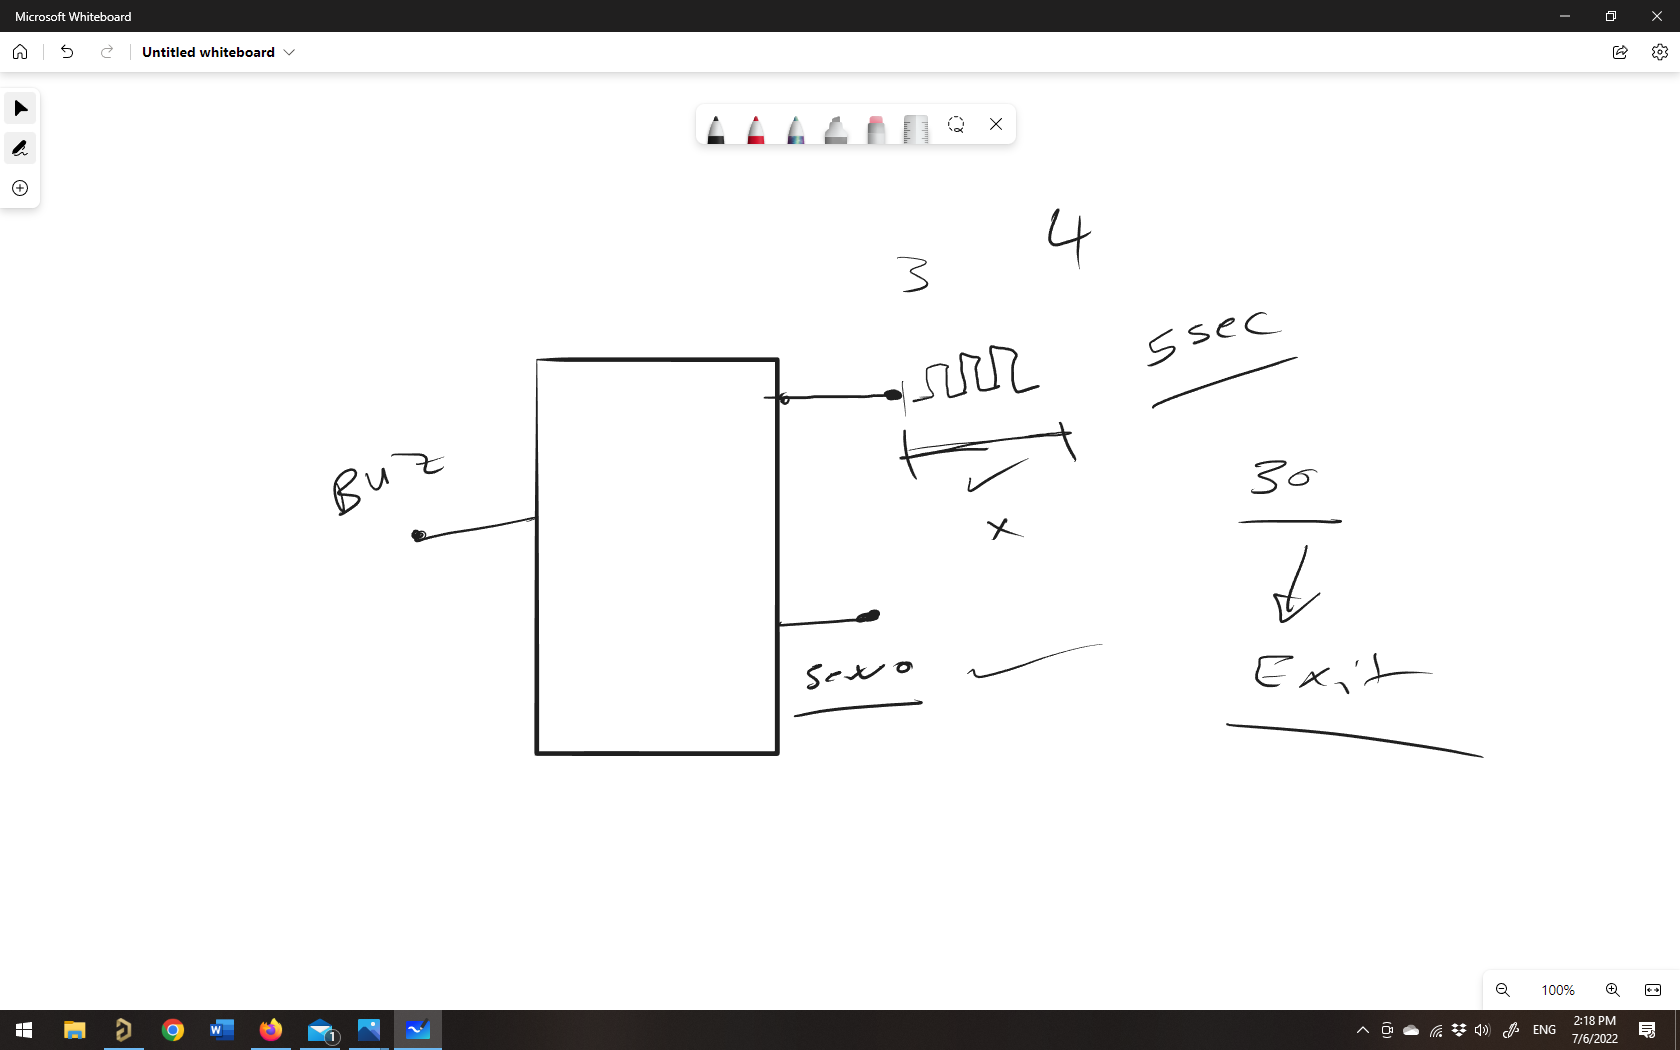 Microsoft Whiteboard
Untitled whiteboard
4
3
5 sec
Buz
30
Exit
servo
100%
1
ENG
2:18 PM
7/6/2022